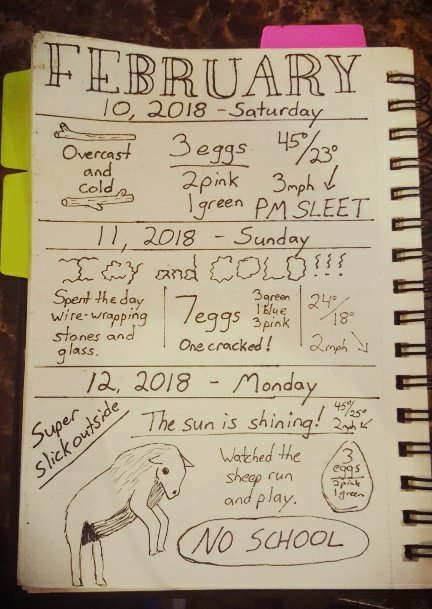 FEBRUARY
10, 2018 - Saturday
Overcast
and
cold
3 eggs
2 pink
1 green
45°/23°
3mph ↓
PM SLEET
11, 2018 - Sunday
Icy and COLD!!!
Spent the day
wire-wrapping
stones and
glass.
7 eggs
3 green
1 blue
3 pink
One cracked!
24°/18°
2mph ↘
12, 2018 - Monday
Super
slick outside
The sun is shining!
45°/25°
2mph ↙
Watched the
sheep run
and play.
3
eggs
2 pink
1 green
NO SCHOOL